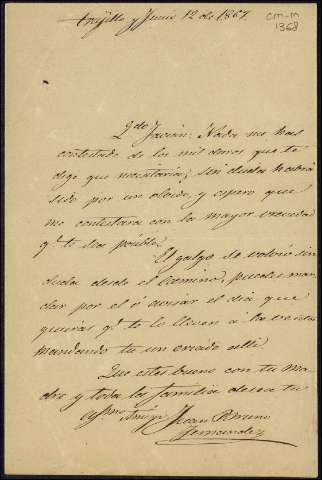 Trujillo y Junio 12 de 1867.
CM-M
1368
Qdo Javier: Nada me has
contestado de los mil duros que te
dige que necesitaria; sin duda habrá
sido por un olvido, y espero que
me contestara con la mayor brevedad
qe. te sea posible.
El galgo se volvió sin
duda desde el camino, puedes man
dar por el ó avisar el dia que
quieras qe. te lo lleven á la venta
mandando tu un criado alli
Que estes bueno con tu Ma
dre y toda la familia desea tu
affmo Amigo Juan
Fernandez